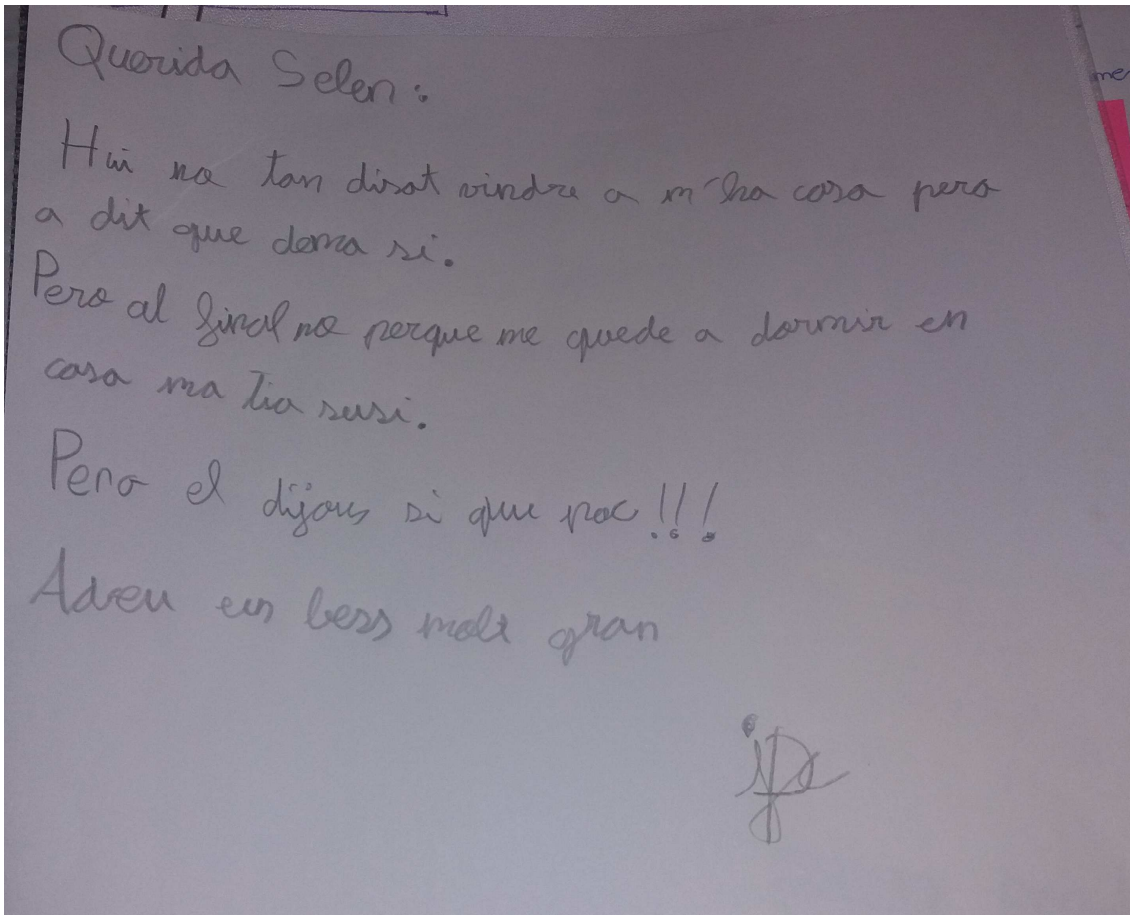 Querida Selen:
Hui no tan disat vindre a m'ha casa pero
a dit que dema si.
Pero al final no perque me quede a dormir en
casa ma tia susi.
Pero el dijous si que poc!!!
Adeu un bess molt gran
me